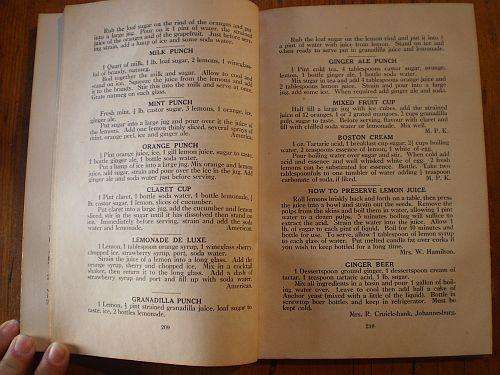 Rub the loaf sugar on the rind of the oranges and put
into a large jug. Pour on it 1 pint of water, the strained
juice of the oranges and of the grapefruit. Just before serv-
ing strain, add a lump of ice and some soda water.
MILK PUNCH
1 Quart of milk, 1 lb. loaf sugar, 2 lemons, 1 wineglass-
ful of brandy, nutmeg.
Boil together the milk and sugar. Allow to cool and
stand on ice. Squeeze the juice from the lemons and add
it to the brandy. Stir this into the milk and serve at once.
Grate nutmeg on each glass.
MINT PUNCH
Fresh mint, ½ lb. castor sugar, 3 lemons, 1 orange, ice,
ginger ale.
Put sugar into a large jug and pour over it the juice of
the lemons. Add one lemon thinly sliced, several sprigs of
mint, orange peel, ice and ginger ale.
American.
ORANGE PUNCH
1 Pint orange juice, 1 gill lemon juice, sugar to taste,
1 bottle ginger ale, 1 bottle soda water.
Put a lump of ice into a large jug. Mix orange and lemon
juice, add sugar, strain and pour over the ice in the jug. Add
ginger ale and soda water just before serving.
CLARET CUP
1 Pint claret, 1 bottle soda water, 4 bottle lemonade,
lb. castor sugar, 1 lemon, slices of cucumber.
Put claret into a large jug, add the cucumber and lemon
sliced, stir in the sugar until it has dissolved then stand on
ice. Immediately before serving, strain and add the soda
water and lemonade.
American.
LEMONADE DE LUXE
1 Lemon, 1 tablespoon orange syrup, 1 wineglass sherry,
chopped ice, strawberry syrup, port, soda water.
Strain the juice of a lemon into a long glass. Add the
orange syrup, sherry and chopped ice. Mix in a cocktail
shaker, then return it to the long glass. Add a dash of
strawberry syrup and port and fill up with soda water.
American.
GRANADILLA PUNCH
1 Lemon, ½ pint strained granadilla juice, loaf sugar to
taste, ice, 2 bottles lemonade.
209
Rub the loaf sugar on the lemon rind and put it into
a pint of water with juice from lemon. Stand on ice and
when ready to serve put in granadilla juice and lemonade.
GINGER ALE PUNCH
1 Pint cold tea, 4 tablespoons castor sugar, orange,
lemon, 1 bottle ginger ale, 1 bottle soda water.
Mix sugar in tea and add 4 tablespoons orange juice and
2 tablespoons lemon juice. Strain and pour into a large
jug, add some ice. When required add ginger ale and soda.
MIXED FRUIT CUP
Half fill a large jug with ice cubes, add the strained
juice of 12 oranges, 1 or 2 grated mangoes, 2 cups granadilla
pulp, sugar to taste. Before serving, flavour with claret and
fill with chilled soda water or lemonade. Mix well.
M. P. K.
BOSTON CREAM
1 oz. Tartaric acid, 1 breakfast cup sugar, 2½ cups boiling
water, 2 teaspoons essence of lemon, 1 white of egg.
Pour boiling water over sugar and stir. When cold add
acid and essence and well whisked white of egg. 2 fresh
lemons can be substituted for essence. Bottle. Take 3
tablespoonfuls to one tumbler of water adding ½ teaspoon
carbonate of soda, if liked.
M. P. K.
HOW TO PRESERVE LEMON JUICE
Roll lemons briskly back and forth on a table, then press
the juice into a bowl and strain out the seeds. Remove the
pulps from the skins and boil them in water, allowing 1 pint
water to a dozen pulps. 5 minutes boiling will suffice to
extract the acid. Strain the water into the juice. Allow 1
lb. of sugar to each pint of liquid. Boil for 10 minutes and
bottle for use. To serve, allow 1 tablespoon of lemon syrup
to each glass of water. Put melted candle fat over corks if
you wish to keep bottled for a long time.
Mrs. W. Hamilton.
GINGER BEER
1 Dessertspoon ground ginger, 1 dessertspoon cream of
tartar, 1 teaspoon tartaric acid, 3 lb. sugar.
Mix all ingredients in a basin and pour 1 gallon of boil-
ing water over. Leave to cool then add half a cake of
Anchor yeast (mixed with a little of the liquid). Bottle in
screwtop beer bottles and keep in refrigerator. Must be
kept cold.
Mrs. R. Cruickshank, Johannesburg.
210